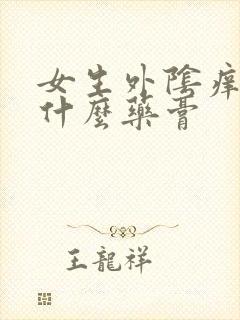 女生外陰癢
什麼藥膏
王龍祥